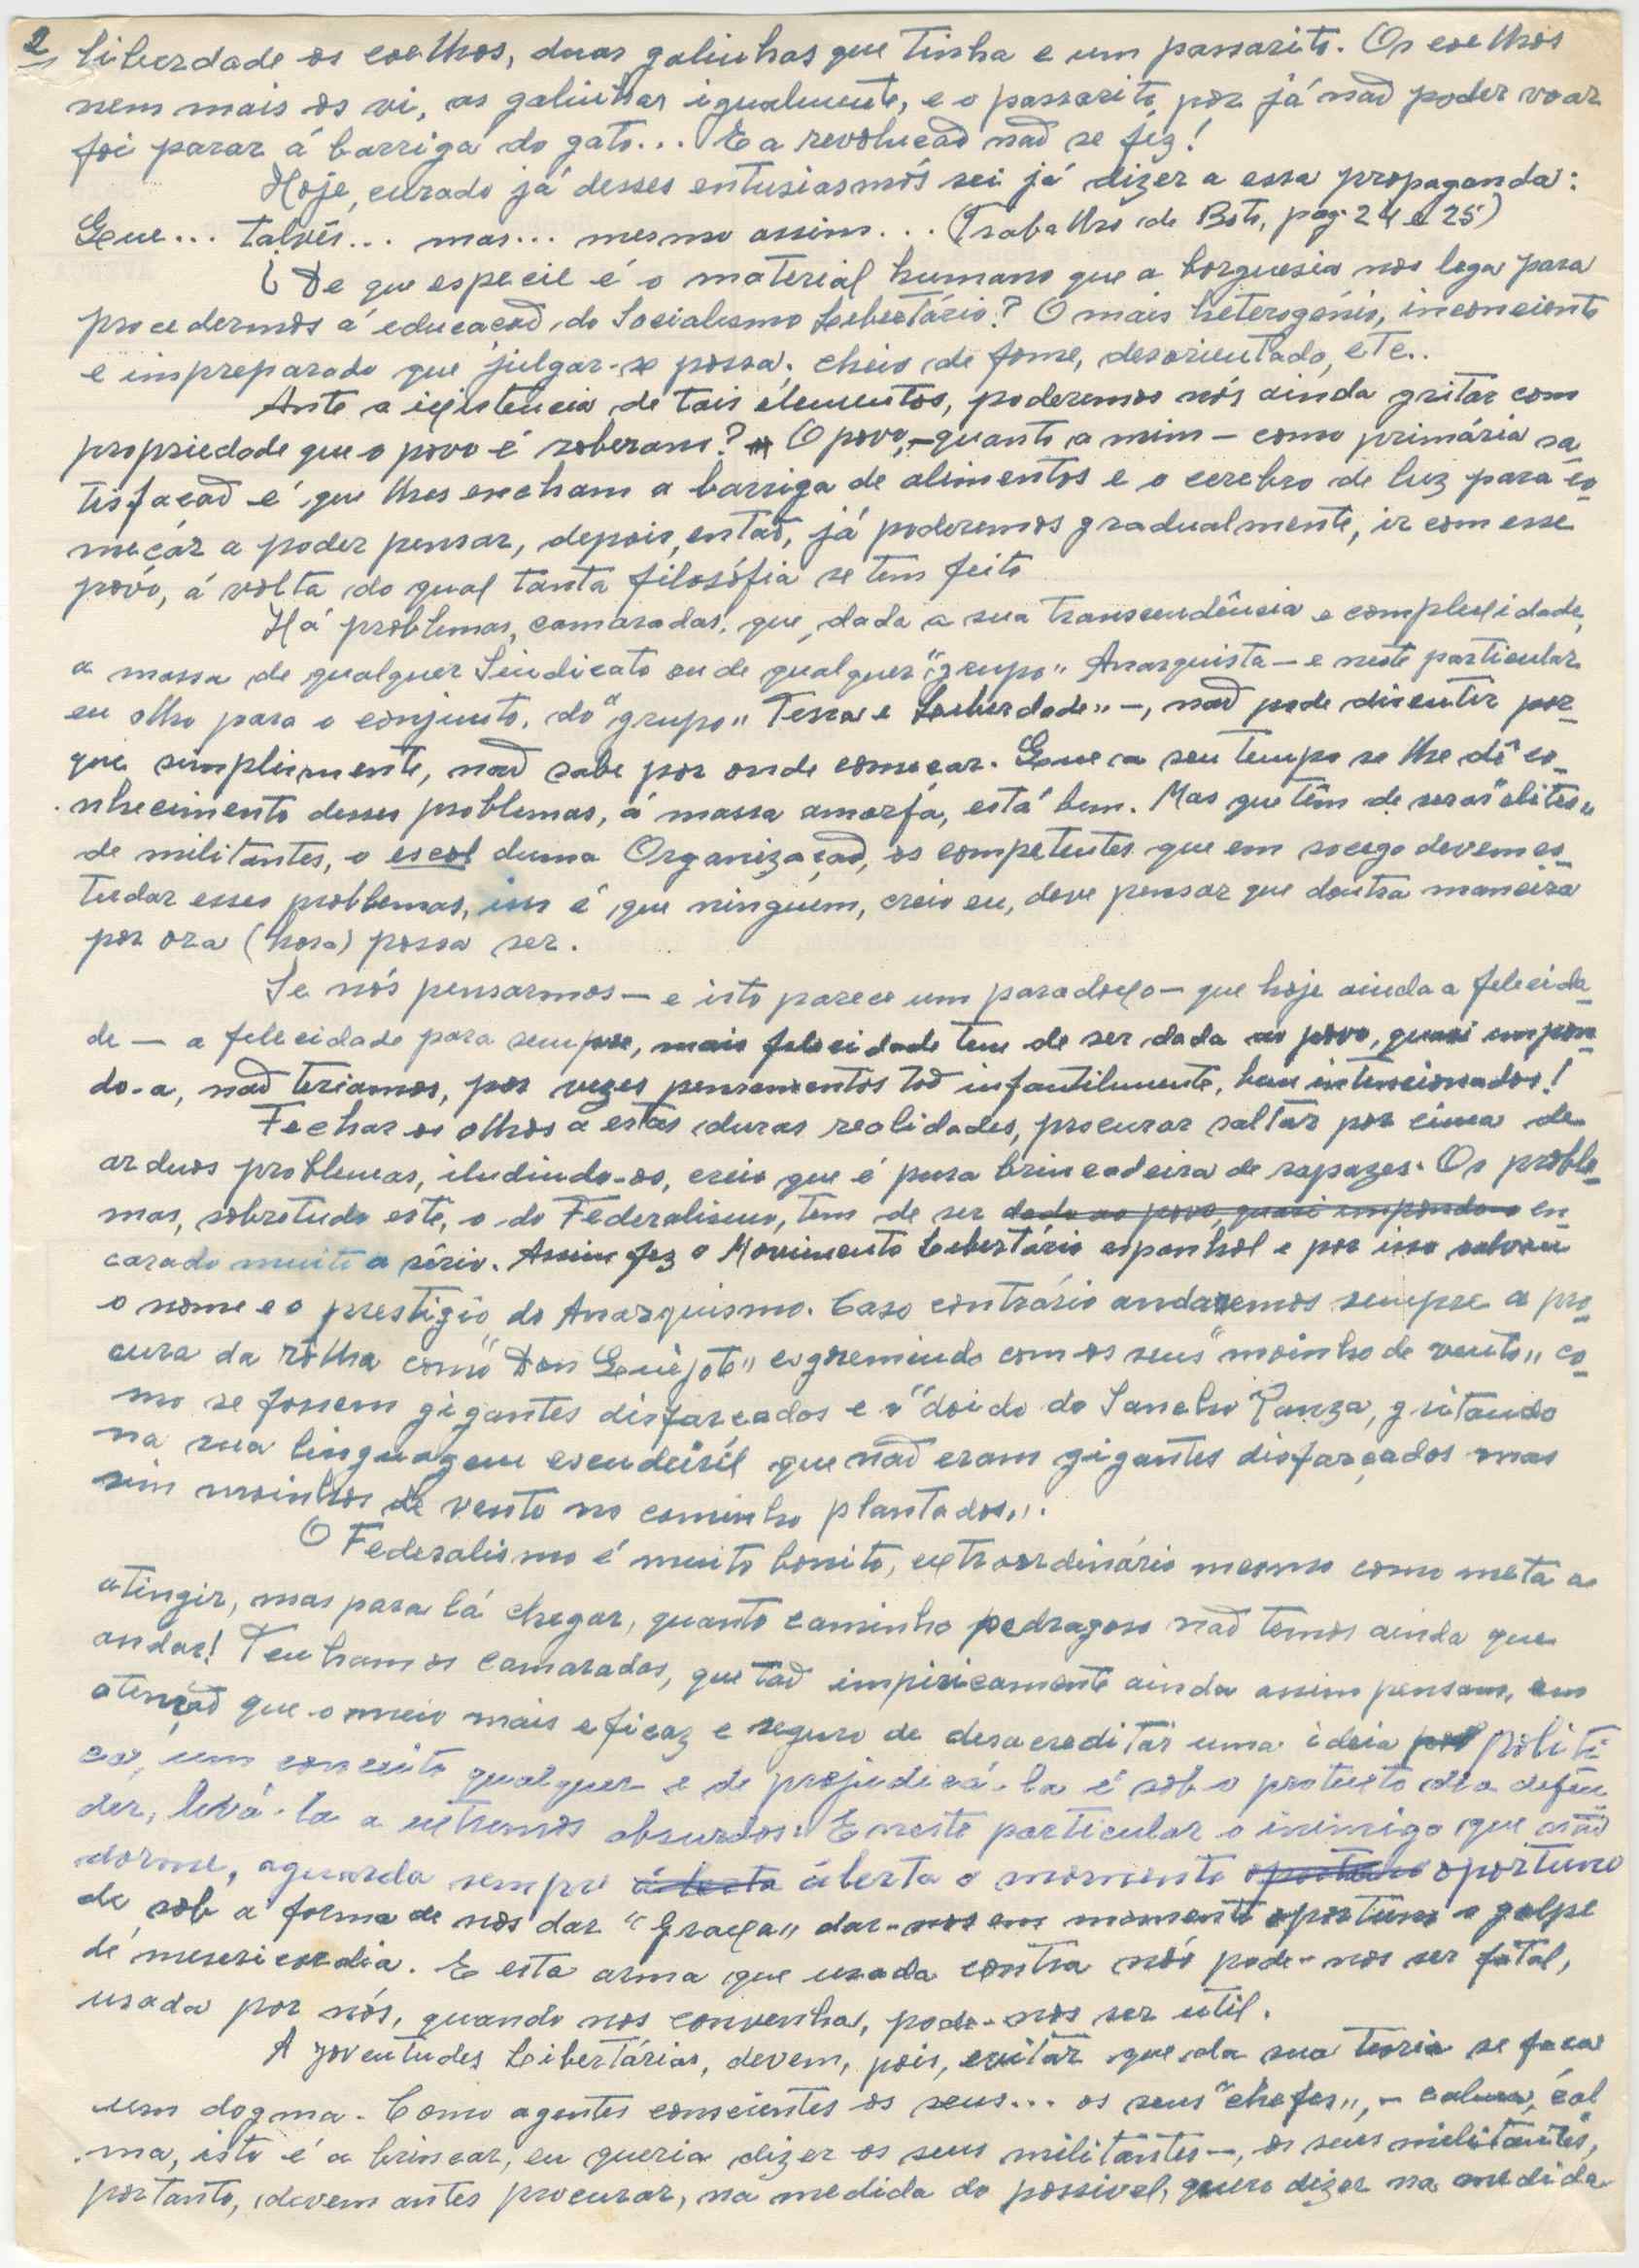 2 liberdade os coelhos, duas galinhas que tinha e um passarito. Os coelhos
nem mais os vi, as galinhas igualmente, e o passarito, por já naõ poder voar
foi parar á barriga do gato... E a revolucaõ naõ se fêz!
Hoje, curado já desses entusiasmós sei já dizer a essa propaganda:
Que... talvês... mas... mesmo assim... (Trabalho de Boto, pag. 24 e 25)
¿De que especie é o material humano que a borguesia nos lega para
procedermos á educacaõ do Socialismo Libertário? O mais heterogénio, inconciente
e impreparado que julgar-se possa; cheio de fome, desorientado, etc..
Ante a existencia de tais elementos, poderemos nós ainda gritar com
propriedade que o povo é soberano? O povo, - quanto a mim - como primária sa_
tisfacaõ é que lhes encham a barriga de alimentos e o cerebro de luz para co_
meçár a poder pensar, depois, entaõ, já poderemos gradualmente, ir com esse
povo, á volta do qual tanta filosófia se tem feito
Há problemas, camaradas, que, dada a sua transcendência e complexidade,
a massa de qualquer Sindicato ou de qualquer "grupo" Anarquista - e neste particular
eu olho para o conjunto, do "grupo" Terra e Liberdade" -, naõ pode discutir por_
que simplismente, naõ sabe por onde comecar. Que a seu tempo se lhe dê co_
nhecimento desses problemas, á massa amorfa, está bem. Mas que têm de ser as "elites"
de militantes, o escol duma Organizaçaõ, os competentes que em socego devem es_
tudar esses problemas, isso é que ninguém, creio eu, deve pensar que doutra maneira
por ora (hora) possa ser.
Se nós pensarmos - e isto parece um paradoxo - que hoje ainda a felecida_
de - a felecidade para sempre, mais felecidade tem de ser dada ao povo, quasi impon_
do-a, naõ teriamos, por vezes pensamentos taõ infantilmente, bem intencionados!
Fechar os olhos a estas duras realidades, procurar saltar por cima de
arduos problemas, iludindo-os, creio que é pura brincadeira de rapazes. Os proble_
mas, sobretudo este, o do Federalismo, tem de ser dado ao povo, quasi impondo-o en_
carado muito a sério. Assim fez o Movimento Libertário espanhol e por isso salvou
o nome e o prestigio do Anarquismo. Caso contrário andaremos sempre a pro_
cura da rôlha como "Don Quejote" esgremindo com os seus "moinho de vento" co_
mo se fossem gigantes disfarcados e o "doido do Sancho Panza, gritando
na sua linguagem escudeiril que naõ eram gigantes disfarçados mas
sim moinhos de vento no caminho plantados".
O Federalismo é muito bonito, extraordinário mesmo como meta a
atingir, mas para lá chegar, quanto caminho pedragoso naõ temos ainda que
andar! Tenham os camaradas, que taõ impiricamente ainda assim pensam, em
atençaõ que o meio mais eficaz e seguro de desacreditár uma ideia politi_
ca, um conceito qualquer e de prejudicá-la é sob o pretexto de a defen_
der, levá-la a extremos absurdos. E neste particular o inimigo que naõ
dorme, aguarda sempre álerta o momento oportuno
de, sob a forma de nos dar "Graxa" dar-nos em momento oportuno o golpe
de mesericordia. E esta arma que usada contra nós pode-nos ser fatal,
usada por nós, quando nos convenha, pode-nos ser util.
A Joventudes Libertárias, devem, pois, evitár que da sua teoria se faca
um dogma. Como agentes conscientes os seus... os seus "chefes", - calma, cal
ma, isto é a brincar, eu queria dizer os seus militantes -, os seus militantes,
portanto, devem antes procurar, na medida do possivel, quero dizer na medida